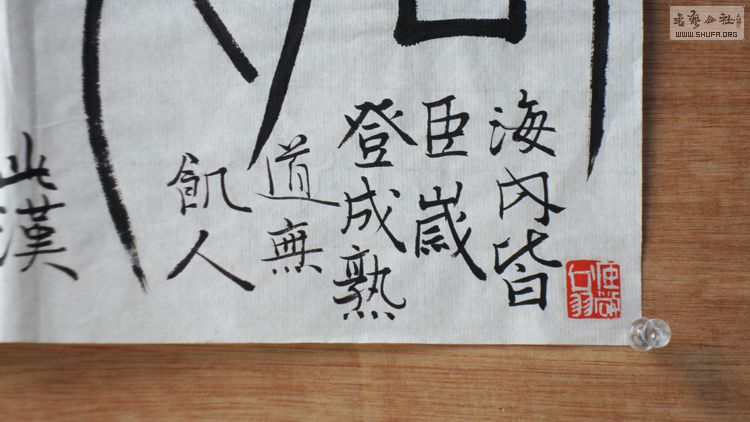 海内皆
臣歲
登成熟
道無
飢人
此漢
WWW.SHUFA.ORG